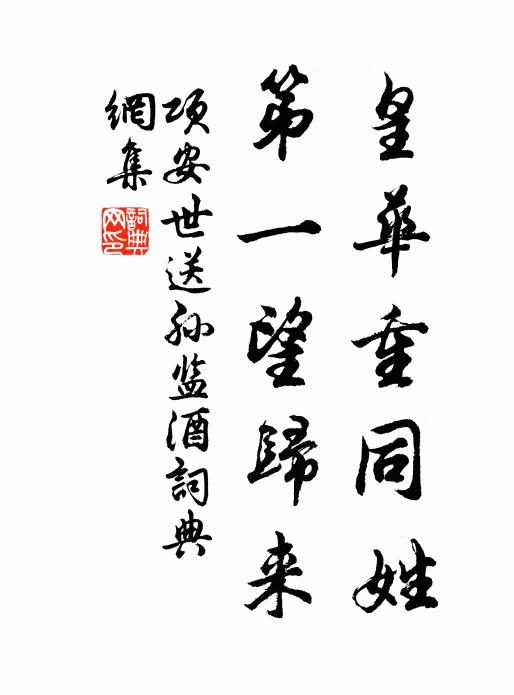 皇華重同姓
第一望歸来
項安世送孙監酒詞典
網集
詞典网印